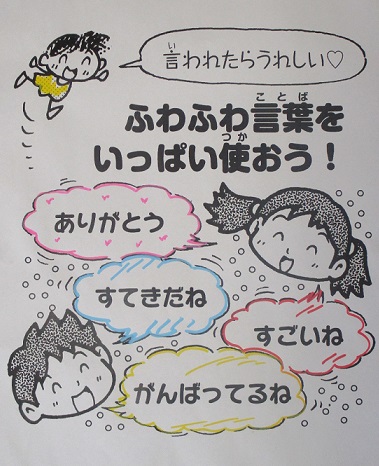 言われたらうれしい♡
ふわふわ言葉を
いっぱい使おう！
ありがとう
すてきだね
すごいね
がんばってるね